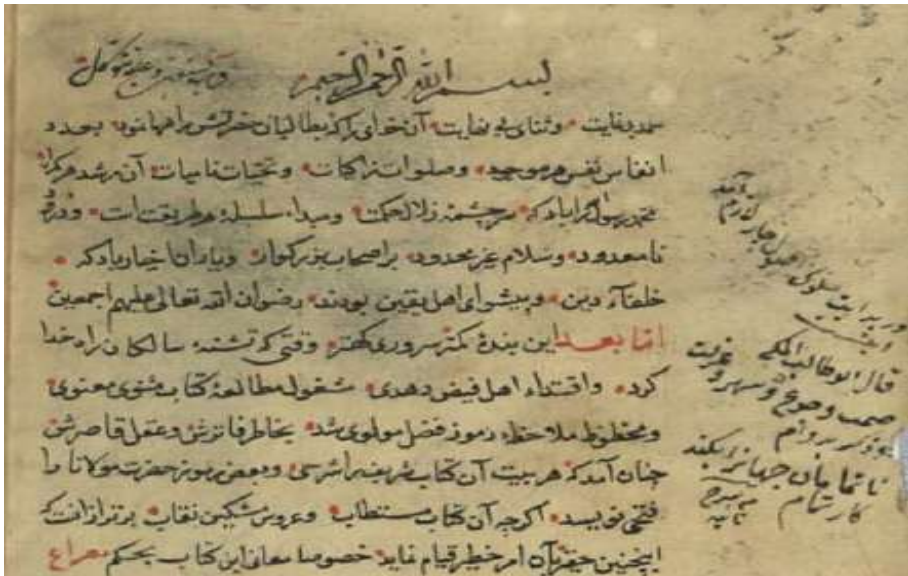 بسم الله الرحمن الرحیم
حمد بیغایت و ثنای بی نهایت آن خدای را که بطالبان خود راهها نمود بعدد
انفاس نفس هر موجود و صلوات زاکیات و تحیات نامیات آن مرشد
محمد رسول را باد که سرچشمهٔ زلال حکمت و مبداء سلسلهٔ هر طریقت است و درود
نامعدود و سلام غیر محدود بر اصحاب بزرکوار و یاران اخیار باد که
خلفآء دین و پیشوای اهل یقین بودند رضوان الله تعالی علیهم اجمعین
اما بعد این بندهٔ کمتر سروری کهتر وقتی که تشنه سالکان راه خدا
کرد و اقتداء اهل فیض و هدی مشغول مطالعهٔ کتاب مثنوی معنوی
و محظوظ ملاحظهٔ رموز فضل مولوی شد بخاطر فاترش و عقل قاصرش
چنان آمد که هر بیت آن کتاب شریف را شرحی و بعض رموز حضرت مولانا را
فتحی نویسد اکرچه آن کتاب مستطاب و عروس مشکین نقاب برتر ازانست که
اینچنین حقیر بآن امر خطیر قیام نماید خصوصا معانی این کتاب بحکم معراج
قال ابو طالب المکی
صمت و جوع و سهر و عزلت
و ذکر بدوام
ناتمامان جهانرا بکند
کار تمام